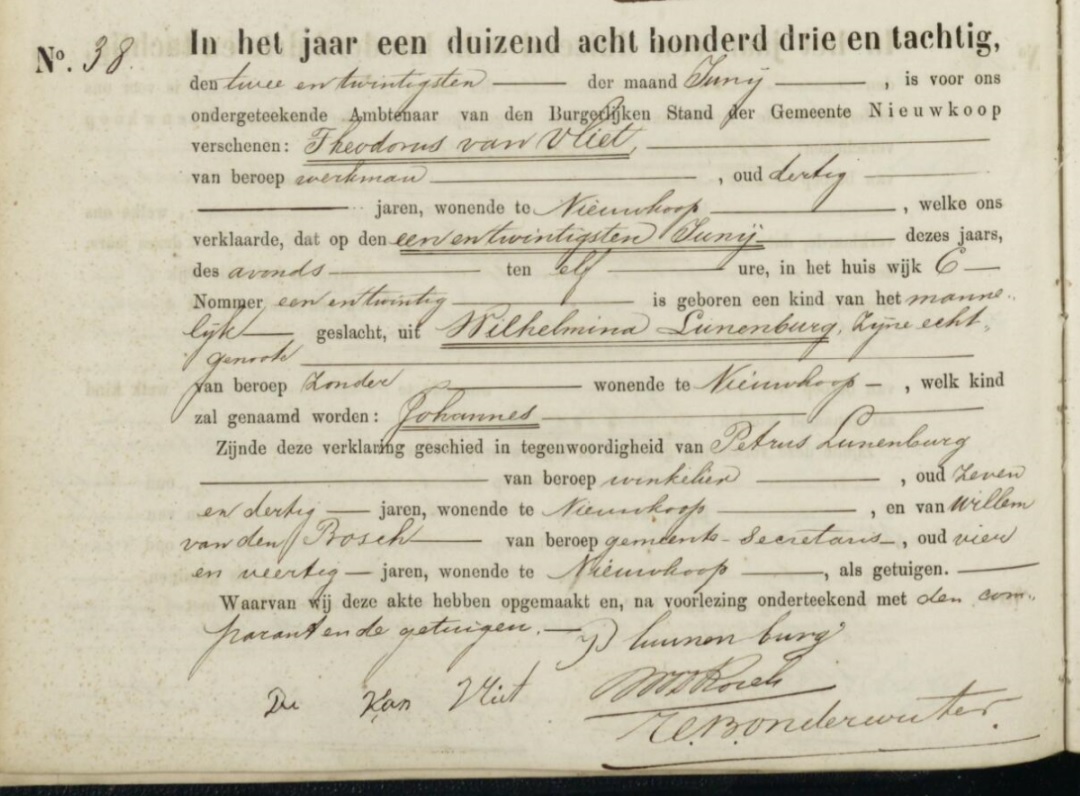 No. 38. In het jaar een duizend acht honderd drie en tachtig,
den twee en twintigsten der maand Junij , is voor ons
ondergeteekende Ambtenaar van den Burgerlijken Stand der Gemeente Nieuwkoop
verschenen: Theodorus van Vliet,
van beroep werkman , oud dertig
jaren, wonende te Nieuwkoop , welke ons
verklaarde, dat op den een en twintigsten Junij dezes jaars,
des avonds ten elf ure, in het huis wijk C
Nommer een en twintig is geboren een kind van het manne-
lijk geslacht, uit Wilhelmina Lunenburg, Zijne echt-
genoote
van beroep Zonder wonende te Nieuwkoop , welk kind
zal genaamd worden: Johannes
Zijnde deze verklaring geschied in tegenwoordigheid van Petrus Lunenburg
van beroep winkelier , oud Zeven
en dertig jaren, wonende te Nieuwkoop , en van Willem
van den Bosch van beroep gemeente-Secretaris , oud vier
en veertig jaren, wonende te Nieuwkoop , als getuigen.
Waarvan wij deze akte hebben opgemaakt en, na voorlezing onderteekend met den com-
parant en de getuigen.
P luunenburg
Van Vliet
Bosch
Bonderwater.